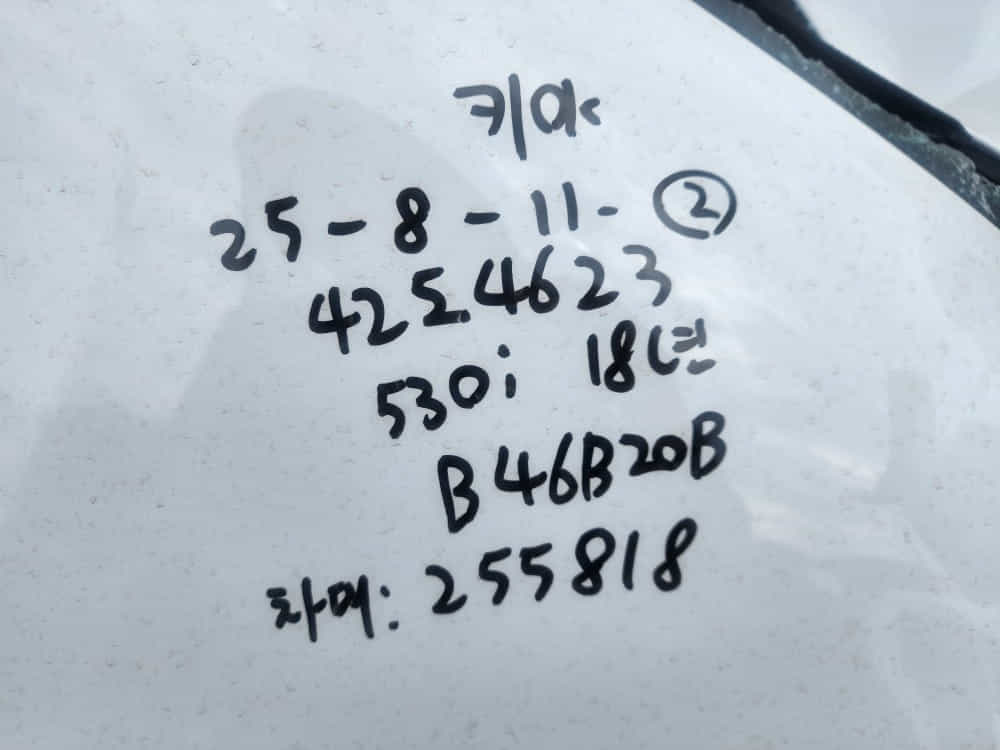 키약
25-8-11-②
425.4623
530i 18년
B46B20B
차대: 255818